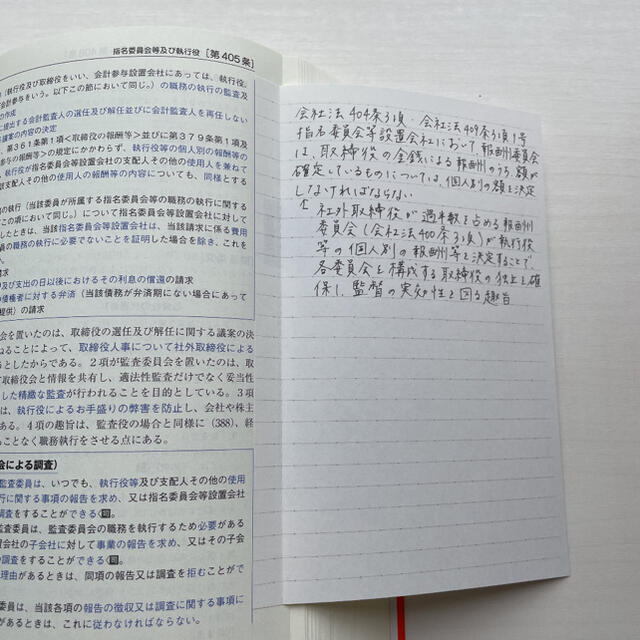 指名委員会等及び執行役 [第405条]
(執行役及び取締役をいい、会計参与設置会社にあっては、執行役、
会計参与をいう。以下この節において同じ。) の職務の執行の監査及
の作成
に提出する会計監査人の選任及び解任並びに会計監査人を再任しない
議案の内容の決定
第361条第1項<取締役の報酬等>並びに第379条第1項及
与の報酬等>の規定にかかわらず、執行役等の個人別の報酬等の
執行役が指名委員会等設置会社の支配人その他の使用人を兼ねて
該支配人その他の使用人の報酬等の内容についても、同様とする
の執行(当該委員が所属する指名委員会等の職務の執行に関する
この項において同じ。)について指名委員会等設置会社に対して
したときは、当該指名委員会等設置会社は、当該請求に係る費用
員の職務の執行に必要でないことを証明した場合を除き、これを
請求
及び支出の日以後におけるその利息の償還の請求
の債権者に対する弁済(当該債務が弁済期にない場合にあって
提供)の請求
会を置いたのは、取締役の選任及び解任に関する議案の決
ねることによって、取締役人事について社外取締役による
うとしたからである。2項が監査委員会を置いたのは、取
て取締役会と情報を共有し、適法性監査だけでなく妥当性
した精緻な監査が行われることを目的としている。3項
は、執行役によるお手盛りの弊害を防止し、会社や株主
ある。4項の趣旨は、監査役の場合と同様に(388)、経
ことなく職務執行をさせる点にある。
会による調査)
監査委員は、いつでも、執行役等及び支配人その他の使用
行に関する事項の報告を求め、又は指名委員会等設置会社
調査をすることができる
監査委員は、監査委員会の職務を執行するため必要がある
置会社の子会社に対して事業の報告を求め、又はその子会
の調査をすることができる
理由があるときは、同項の報告又は調査を拒むことがで
委員は、当該各項の報告の徴収又は調査に関する事項に
があるときは、これに従わなければならない。
会社法404条3項・会社法409条3項1号
指名委員会等設置会社において、報酬委員会
は、取締役の金銭による報酬のうち、額が
確定しているものについては、個人別の額を決定
しなければならない
↑ 社外取締役が過半数を占める報酬
委員会(会社法400条3項)が執行役
等の個人別の報酬等を決定することで、
各委員会を構成する取締役の独立を確
保し、監督の実効性を図る趣旨